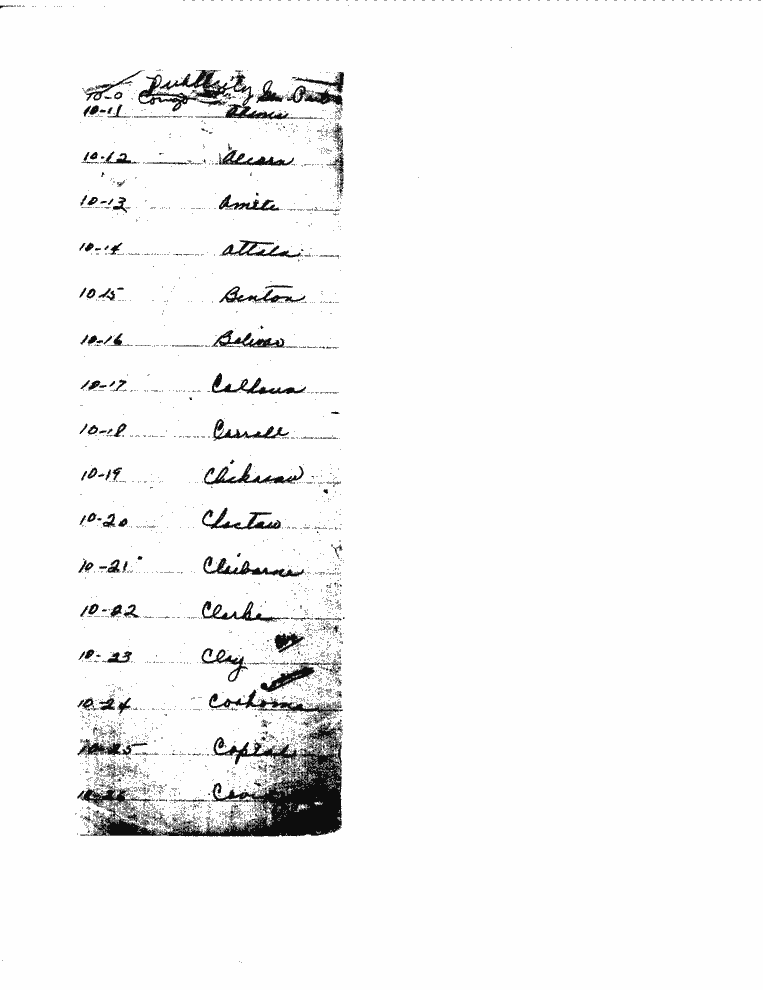 10-0 Publicity
10-11 Adams
10-12 Alcorn
10-13 Amite
10-14 Attala
10 15 Benton
10-16 Bolivar
10-17 Calhoun
10-18 Carroll
10-19 Chickasaw
10-20 Choctaw
10-21 Claiborne
10-22 Clarke
10-23 Clay
10-24 Coahoma
10-25 Copiah
10-26